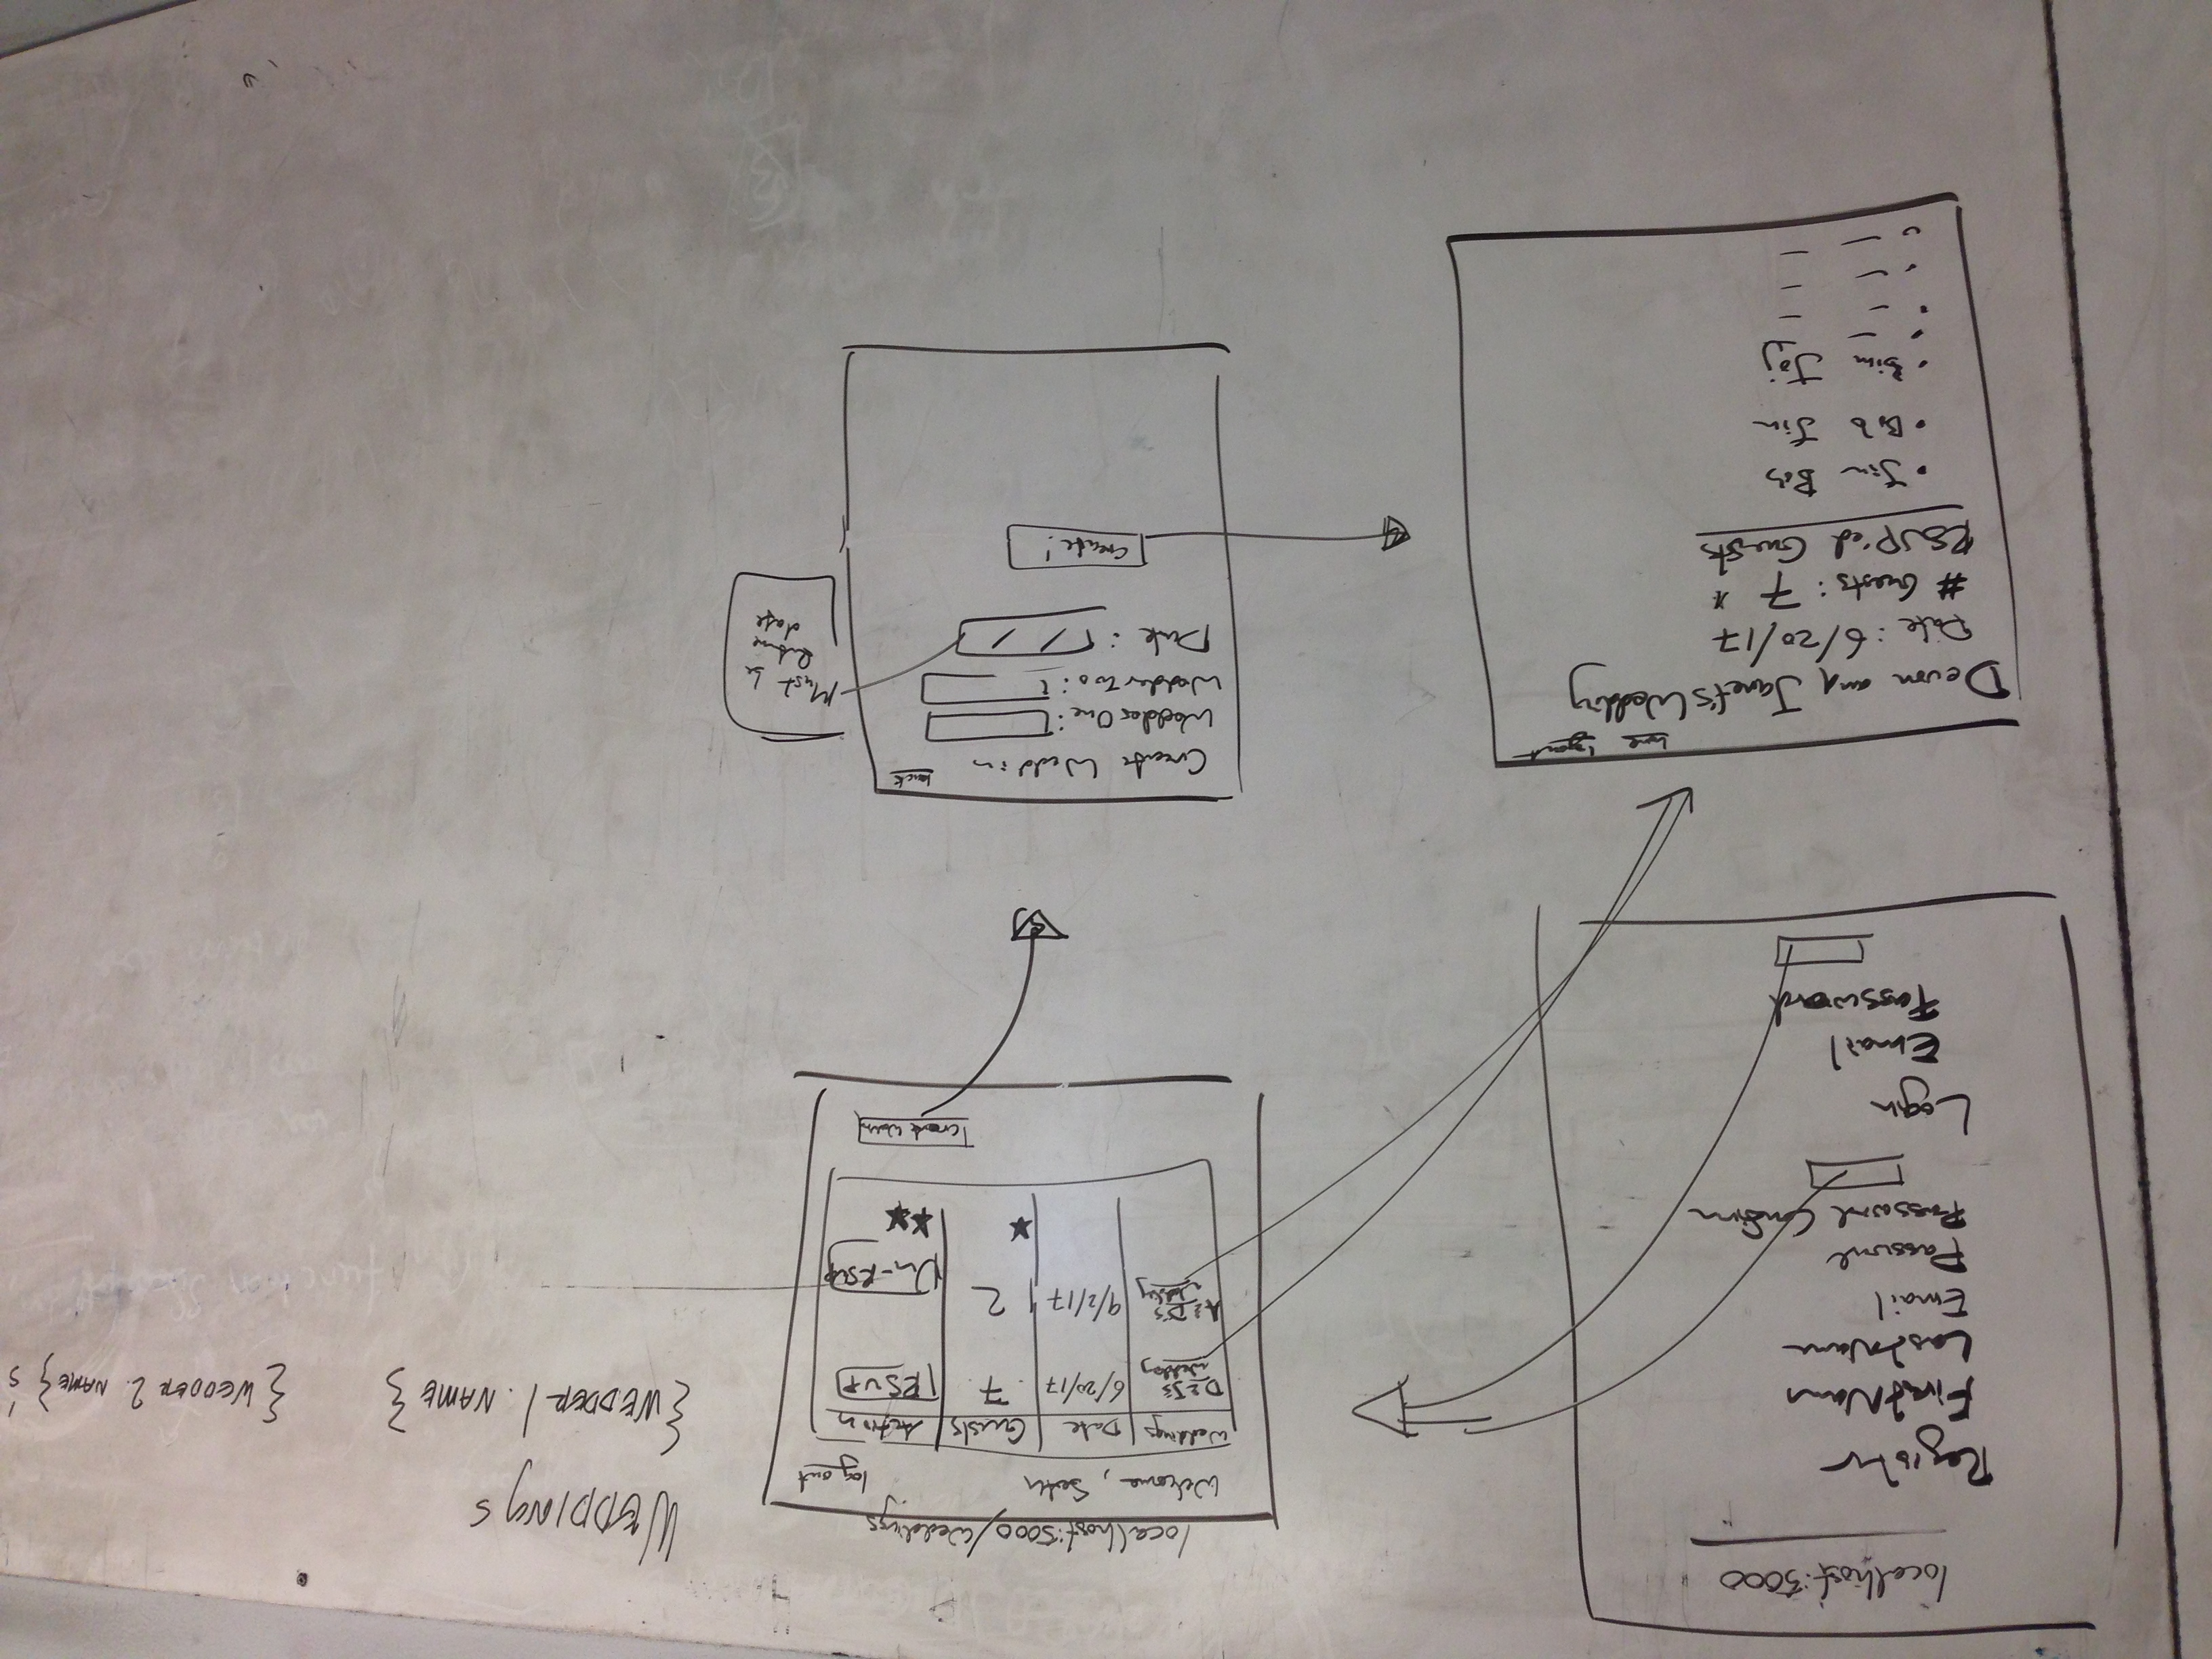 localhost:5000
Register
First Name
Last Name
Email
Password
Password Confirm
Login
Email
Password
localhost:5000/Weddings
Welcome, Seth
log out
Weddings Date Guests Action
D & J's wedding 6/20/17 7 RSVP
A & D's wedding 9/2/17 2 Un-RSVP
create
WEDDINGS
{WEDDER 1. NAME} {WEDDER 2. NAME}'s
function
home logout
Devon and Janet's Wedding
Date: 6/20/17
# Guests: 7 *
RSVP'ed Guests
• Jim Bob
• Bob Jim
• Bim Joj
Create Weddin back
Wedder One:
Wedder Too:
Date: / /
Must be
future
date
create!